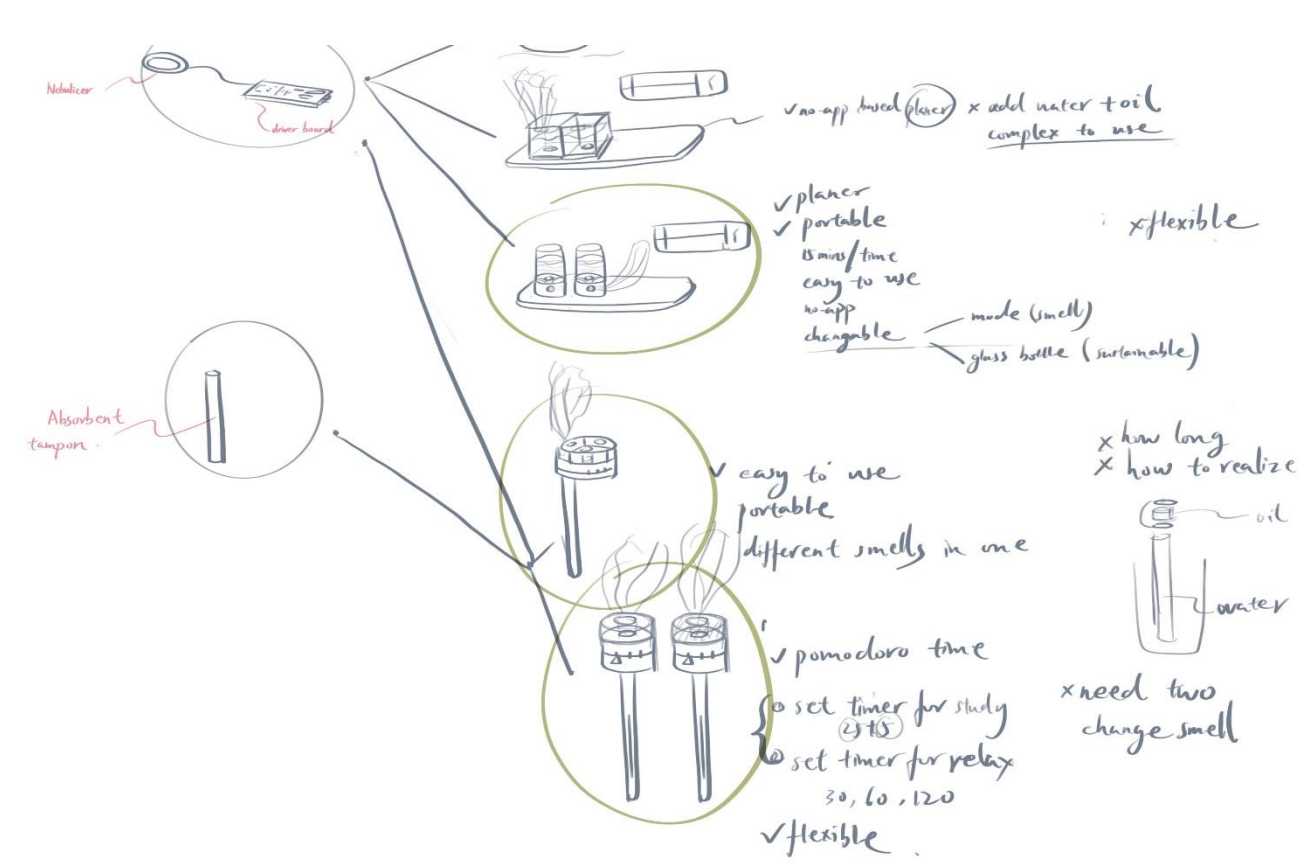 Nebulizer
driver board
✓ no-app based planer
× add water + oil
complex to use
✓ planer
✓ portable
15 mins/time
easy to use
no-app
changable
mode (smell)
glass bottle (sustainable)
× flexible
Absorbent
tampon.
✓ easy to use
portable
different smells in one
× how long
× how to realize
oil
water
✓ pomodoro time
set timer for study
25+5
set timer for relax
30, 60, 120
✓ flexible
× need two
change smell